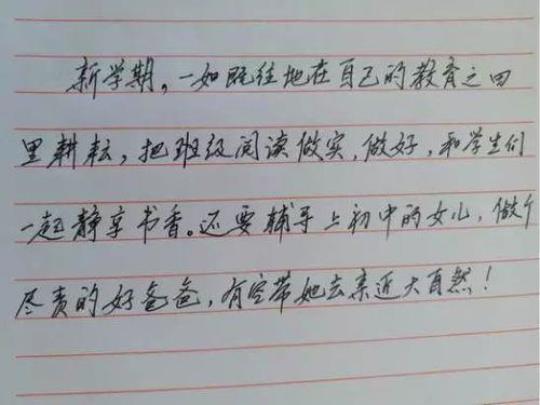 新学期，一如既往地在自己的教育之田
里耕耘，把班级阅读做实，做好，和学生们
一起静享书香。还要辅导上初中的女儿，做个
尽责的好爸爸，有空带她去亲近大自然！